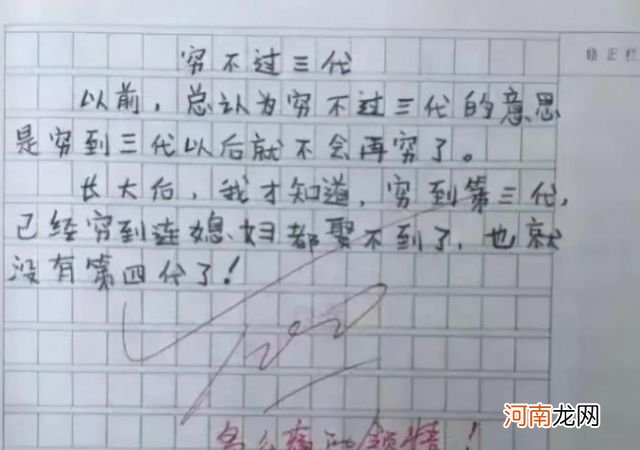 穷不过三代
修正栏
以前，总认为穷不过三代的意思
是穷到三代以后就不会再穷了。
长大后，我才知道，穷到第三代，
已经穷到连媳妇都娶不到了，也就
没有第四代了！
100
多么痛的领悟！
河南龙网